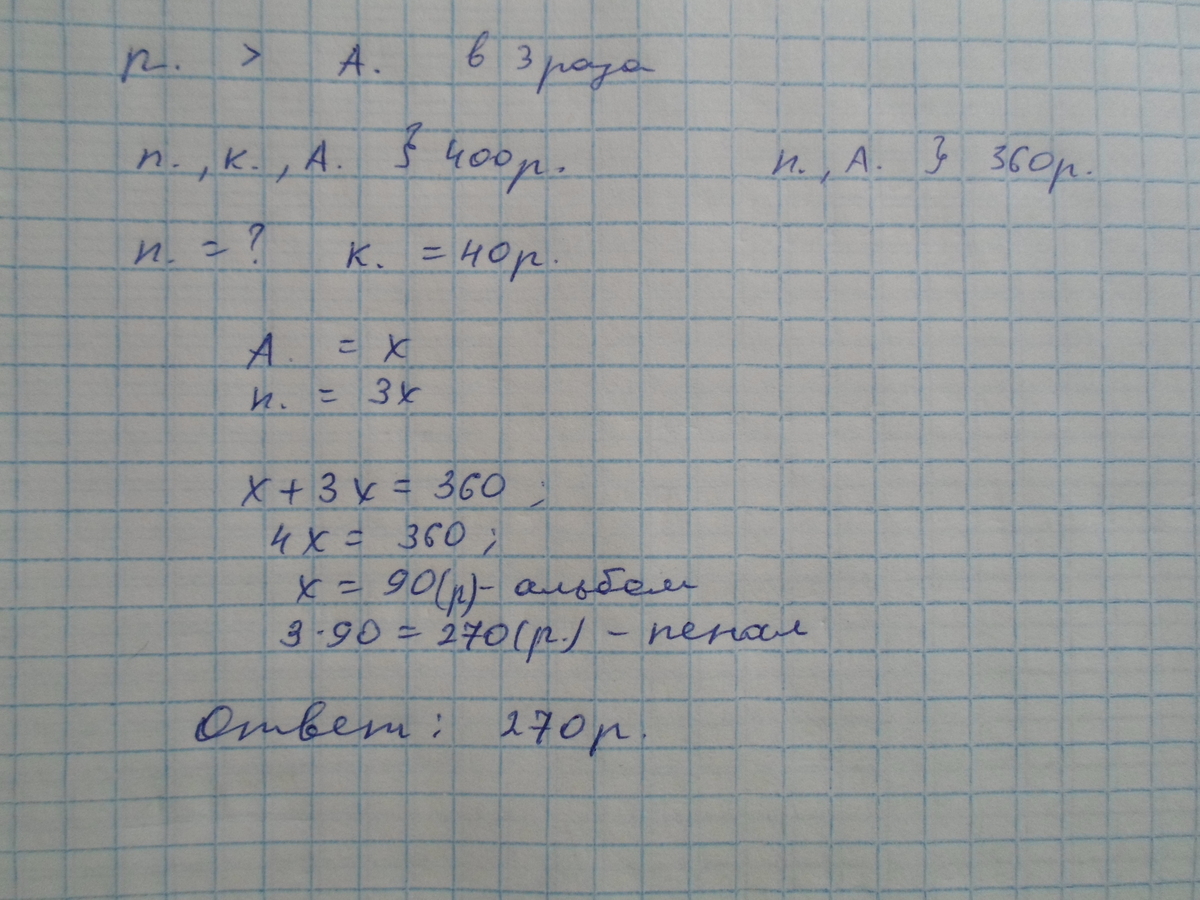 п. > А. в 3 раза
п., к., А. } 400р. п., А. } 360р.
п. = ? к. = 40р.
А. = х
п. = 3х
х + 3х = 360 ;
4х = 360 ;
х = 90(р)- альбом
3·90 = 270(р.) - пенал
Ответ : 270р.